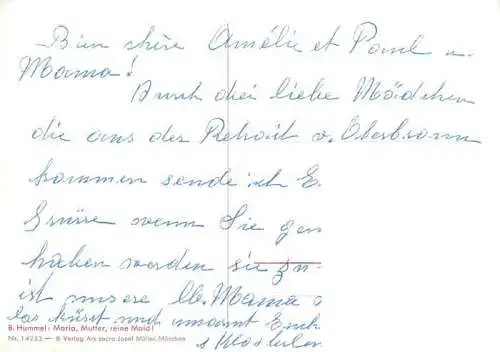 Bien chère Amélie et Paul u.
Mama!
Durch drei liebe Mädchen
die aus der Retrait v. Oberbronn
kommen sende ich E.
Grüsse wenn Sie gen
haben werden sie zu-
ist unsere lb. Mama
las küsst und umarmt Euch
B. Hummel: Maria, Mutter, reine Maid!
Nr. 14253 — © Verlag Ars sacra Josef Müller, München